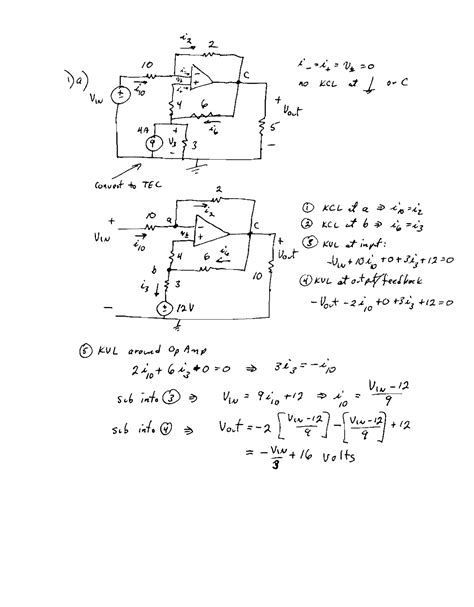 1) a)
i₂ → 2
10
i₁₀ →
V_IN
C
4
6
i₆
4A
V₃
3
5
+ Vout −
i₋ = i₊ = V± = 0
no KCL at ⏚ or C
Convert to TEC
2
i₂
10
a
C
+ V_IN −
i₁₀
4
6
i₆
b
i₃
3
12V
10
+ Vout −
① KCL at a ⇒ i₁₀ = i₂
② KCL at b ⇒ i₆ = i₃
③ KVL at input:
-V_IN + 10i₁₀ + 0 + 3i₃ + 12 = 0
④ KVL at output/feedback
-Vout - 2i₁₀ + 0 + 3i₃ + 12 = 0
⑤ KVL around Op Amp
2i₁₀ + 6i₃ + 0 = 0 ⇒ 3i₃ = -i₁₀
sub into ③ ⇒ V_IN = 9i₁₀ + 12 ⇒ i₁₀ = (V_IN - 12)/9
sub into ④ ⇒ Vout = -2[(V_IN - 12)/9] - [(V_IN - 12)/9] + 12
= -V_IN/3 + 16 Volts